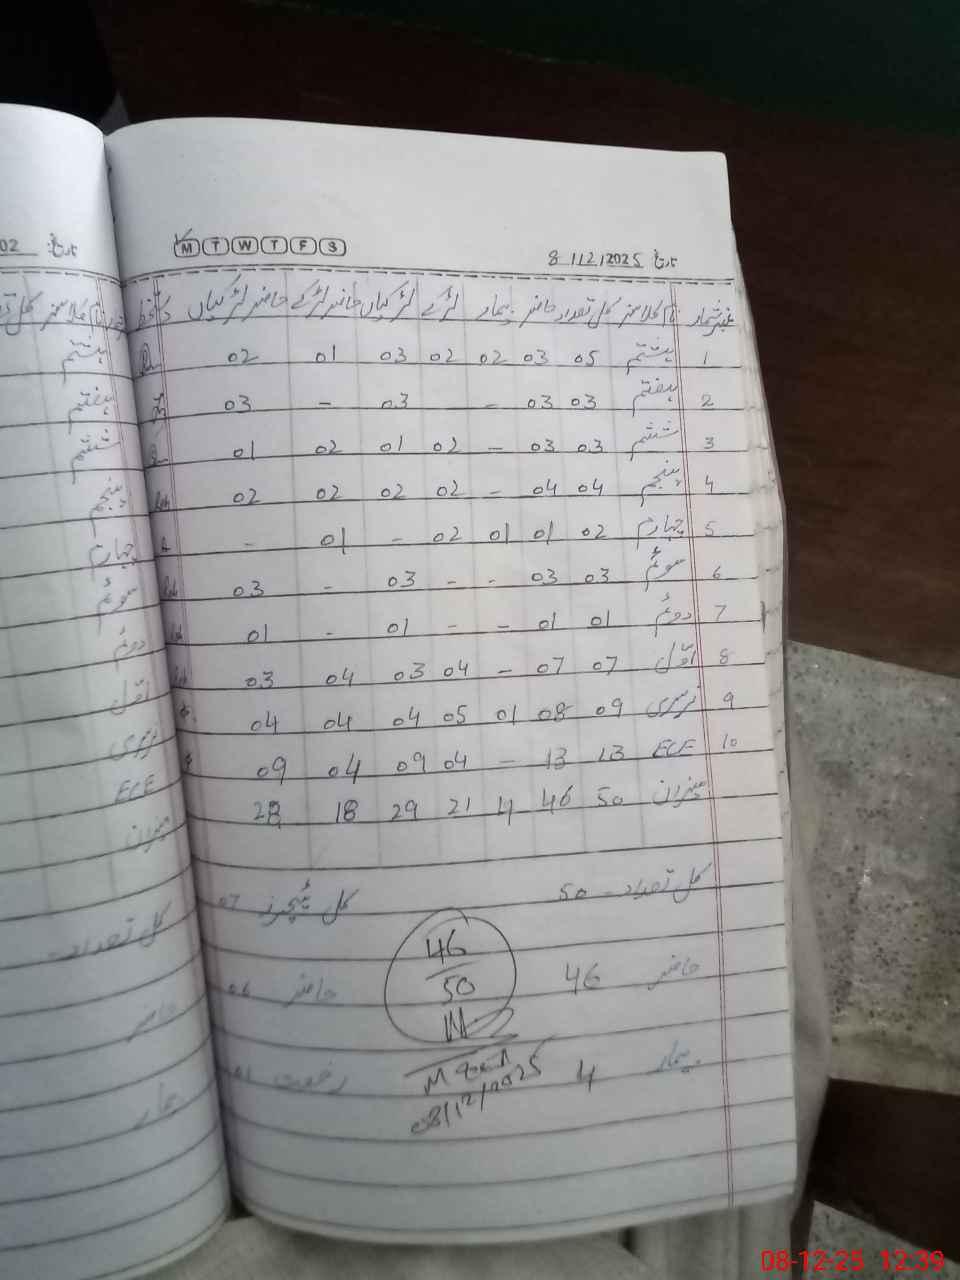 M T W T F S
تاریخ 8/12/2025
نمبر شمار نام کلاسز کل تعداد حاضر بیمار لڑکے لڑکیاں حاضر لڑکے حاضر لڑکیاں دستخط
1 ہشتم 05 03 02 02 03 01 02
2 ہفتم 03 03 - 03 - 03
3 ششم 03 03 - 02 01 02 01
4 پنجم 04 04 - 02 02 02 02
5 چہارم 02 01 01 02 - 01 -
6 سوئم 03 03 - - 03 - 03
7 دوئم 01 01 - - 01 - 01
8 اوّل 07 07 - 04 03 04 03
9 نرسری 09 08 01 05 04 04 04
10 ECE 13 13 - 04 09 04 09
میزان 50 46 4 21 29 18 28
کل تعداد - 50 کل ٹیچرز 07
حاضر 46 حاضر 06
بیمار 4 رخصت 01
46
50
08/12/2025
02 تاریخ
کلاسز
ہشتم
ہفتم
ششم
پنجم
چہارم
سوئم
دوئم
اوّل
نرسری
ECE
میزان
کل تعداد -
حاضر
بیمار
08-12-25 12:39